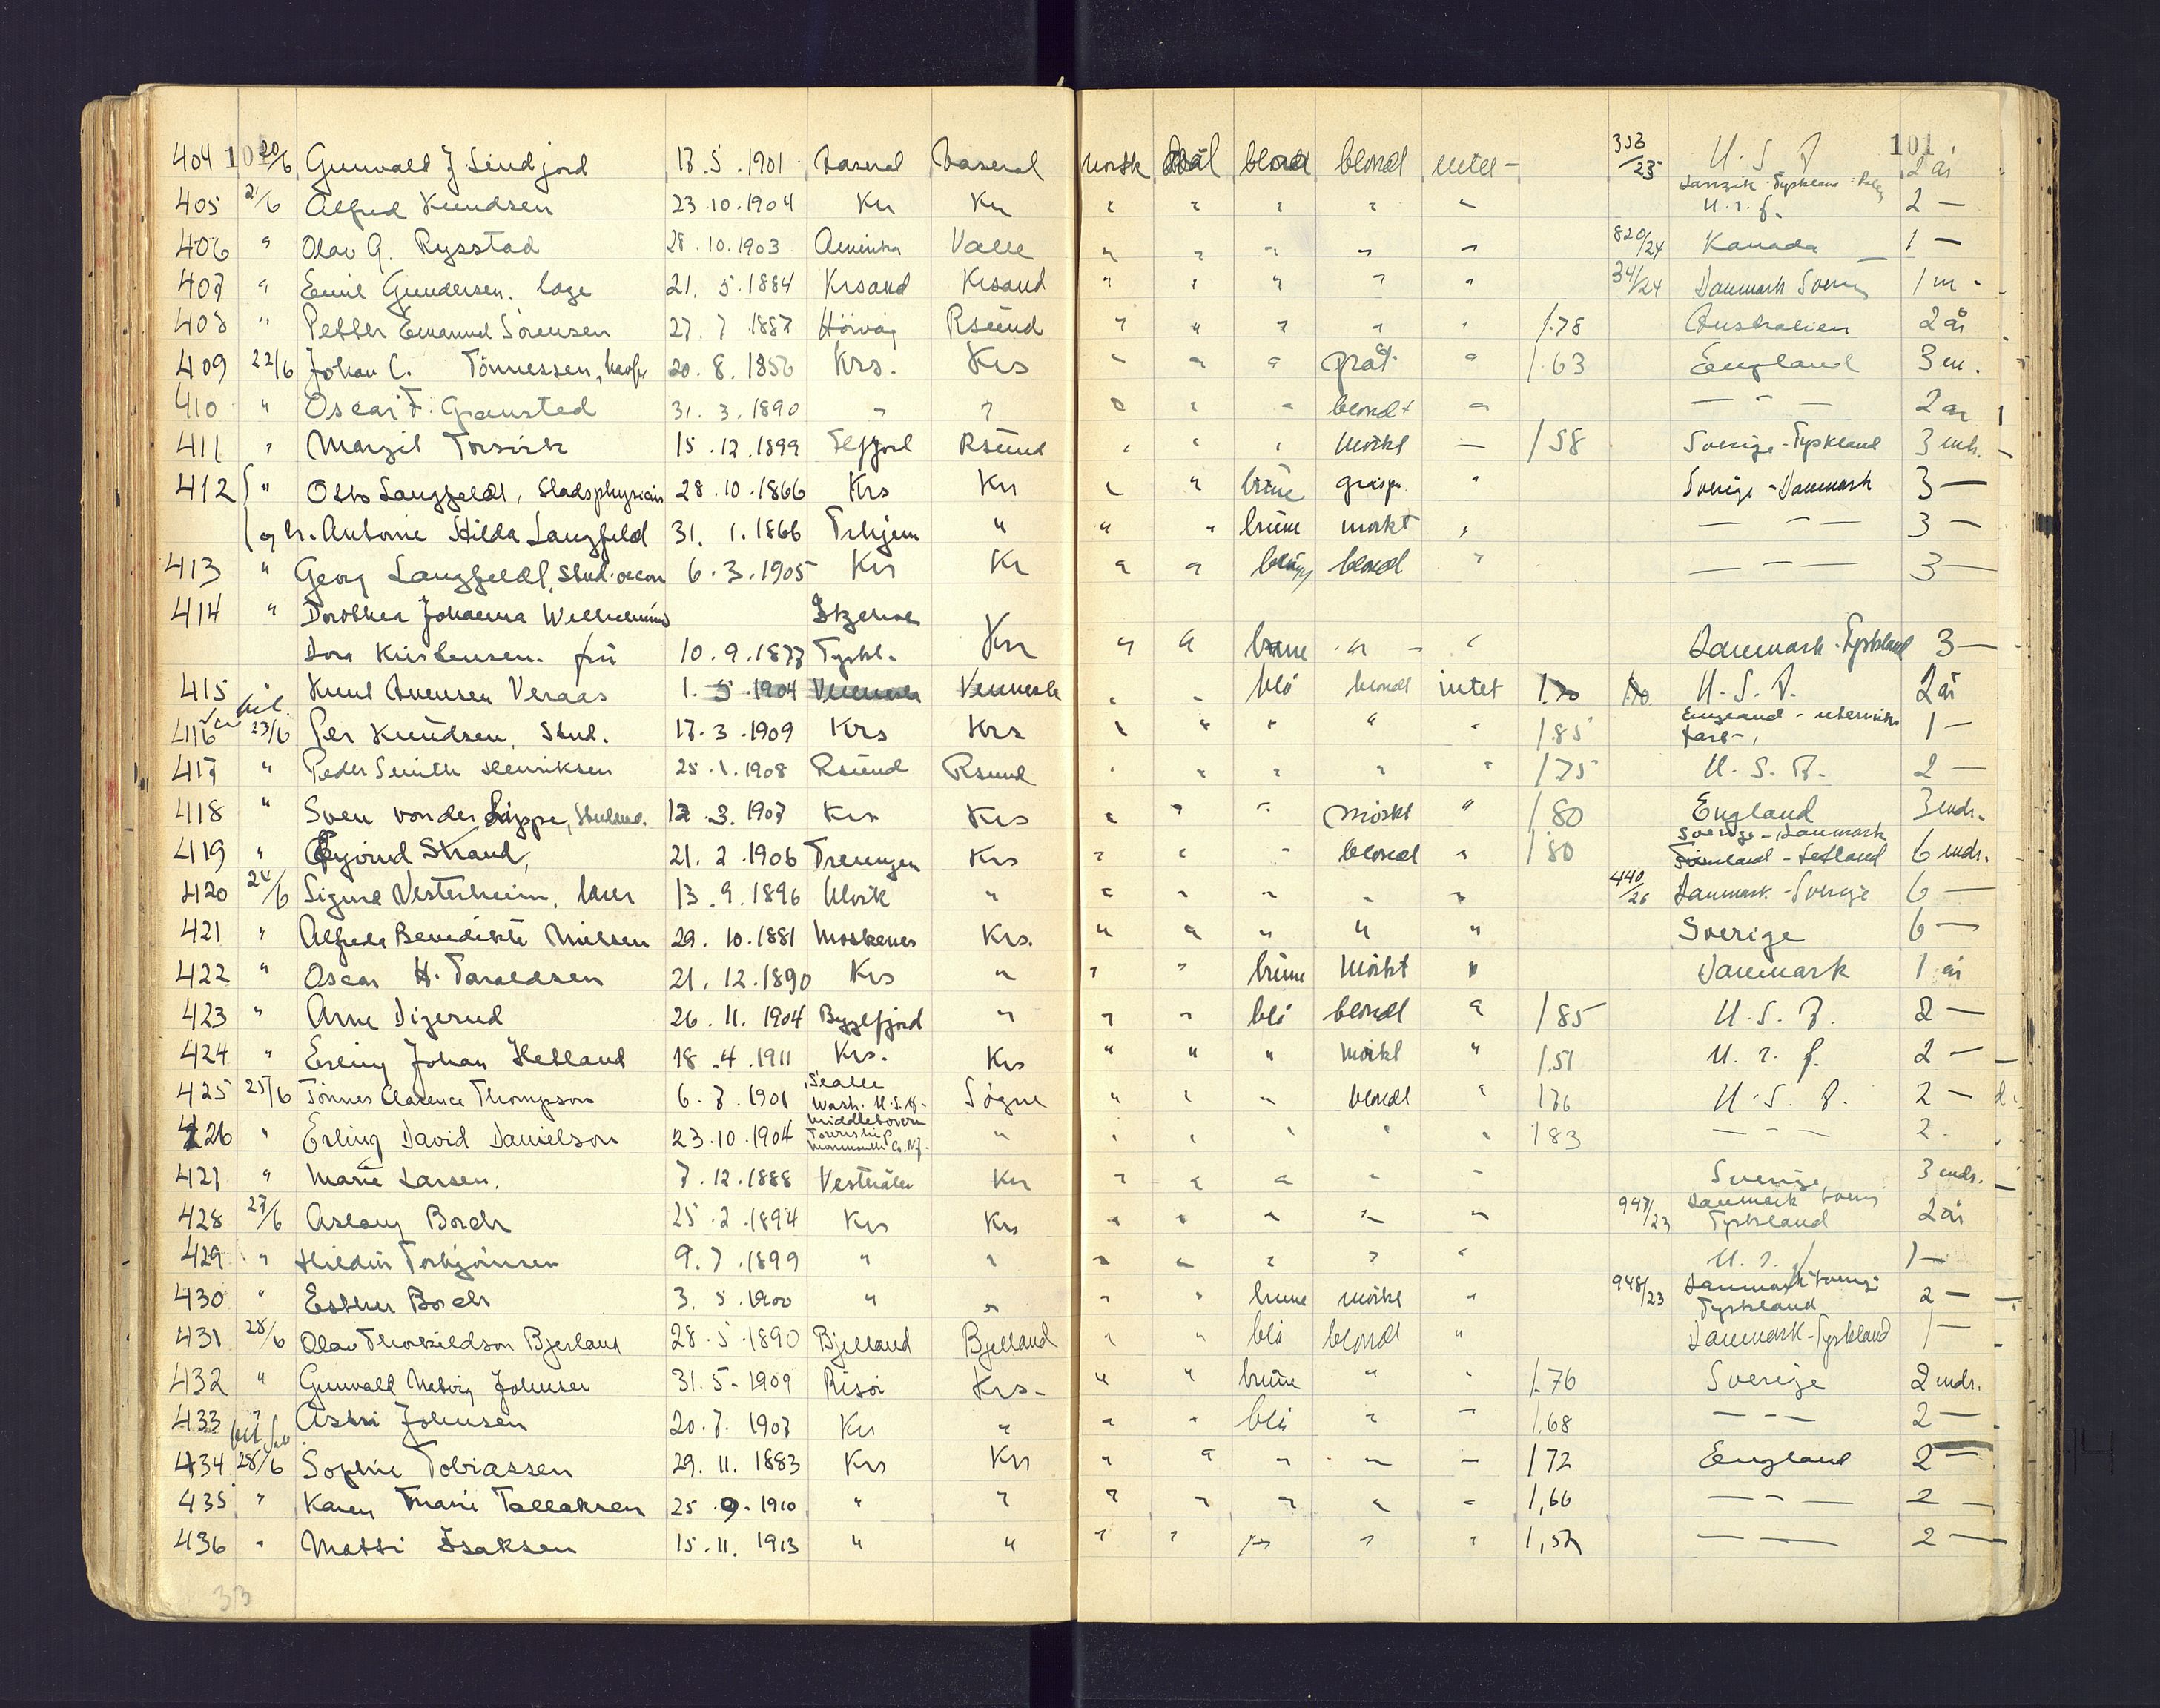 404 20/6 Gunvald J Lindjord 17.5.1901 norsk blond 353/23 101 2 år
405 21/6 Alfred Knudsen 23.10.1904 Kr Kr " " " " " U.S.A. 2 —
406 " Olav G. Rysstad 28.10.1903 Amerika Valle " " " " " 820/24 Kanada 1 —
407 " Emil Gundersen. 21.5.1884 Krsand Krsand " " " " " 34/24 Danmark Sverig 1 m
408 " Petter Emanuel Sörensen 27.7.1887 Hörvåg Rsund " " " " " 1.78 Australien 2 år
409 22/6 Johan C. Tönnessen, 20.8.1856 Krs. Krs " " " grått " 1.63 England 3 m.
410 " Oscar F. Gransted 31.3.1890 " " " " " blondt " — " — 2 år
411 " Margit Torsvik 15.12.1899 Rsund " " " mörkt — 158 Sverige-Tyskland 3 mdr.
412 " Otto Langfeldt, Stadsphysicus 28.10.1866 Krs Kr " " brune " Sverige-Danmark 3 —
og Antonie Hilda Langfeld 31.1.1866 Trhjem " " " brune mörkt " — " — 3 —
413 " Georg Langfeldt, stud. oecon 6.3.1905 Kr Kr " " blond " — — — 3 —
414 " Dorothea Johanna Wilhelmine
Dora Kristensen. frü 10.9.1877 Tyskl. Kr " " brune " " Danmark-Tyskland 3 —
415 " Knut Veraas 1.5.1904 Vennesla Vennesla " " blå blondt intet 1.70 U.S.A. 2 år
416 23/6 Per Knudsen, Stud. 17.3.1909 Krs Krs " " " " " 1.85 England 1 —
417 " Peder Smith Henriksen 25.1.1908 Rsund Rsund " " " " " 175 U.S.A. 2 —
418 " Sven von der Lippe, 12.3.1907 Krs Krs " " " mörkt " 180 England 3 mdr.
419 " Eyvind Strand, 21.2.1906 Treungen Krs " " " blond " 180 Sverige-Danmark 6 mdr.
420 24/6 Sigurd Vesterheim, 13.9.1896 Ulvik " " " " " " 440/26 Danmark-Sverige 6 —
421 " Alfreda Benedikte Nielsen 29.10.1881 Moskenes Krs. " " " " " Sverige 6 —
422 " Oscar H. Taraldsen 21.12.1890 Krs " " " brune mörkt " Danmark 1 år
423 " Arne Digerud 26.11.1904 Byglfjord " " " blå blondt " 185 U.S.A. 2 —
424 " Erling Johan Helland 18.4.1911 Krs. Krs " " " mörkt " 1.51 U.S.A. 2 —
425 25/6 Tönnes Clarence Thompson 6.7.1901 Wash. U.S.A. Sögne " " " blondt " 176 U.S.A. 2 —
426 " Erling David Danielson 23.10.1904 Middletown Township Monmouth Co. N.J. " " " " " " 183 — " — 2
427 " Marie Larsen. 7.12.1888 Vesterålen Kr " " " " " Sverige 3 mdr.
428 27/6 Aslaug Borch 25.2.1894 Krs Krs " " " " " 947/23 Danmark Sverig Tyskland 2 år
429 " Torbjörnsen 9.7.1899 " " " " " " " U.S.A. 1 —
430 " Esther Borch 3.5.1900 " " " " brune mörkt " 948/23 Danmark Sverige Tyskland 2 —
431 28/6 Olav Thorkildson Bjerland 28.5.1890 Bjelland Bjelland " " blå blondt " Danmark-Tyskland 1 —
432 " Gunvald Johnsen 31.5.1909 Risör Krs. " " brune " " 1.76 Sverige 2 mdr.
433 " Astri Johnsen 20.7.1907 Kr " " " blå " " 1.68 — — — 2 —
434 28/6 Sophie Tobiassen 29.11.1883 Krs Krs " " " " — 172 England 2 —
435 " Karen Marie Tallaksen 25.9.1910 " " " " " " " 1,66 — " — 2 —
436 " Matti Isaksen 15.11.1913 " " " " " " " 1,52 — — 2 —
33